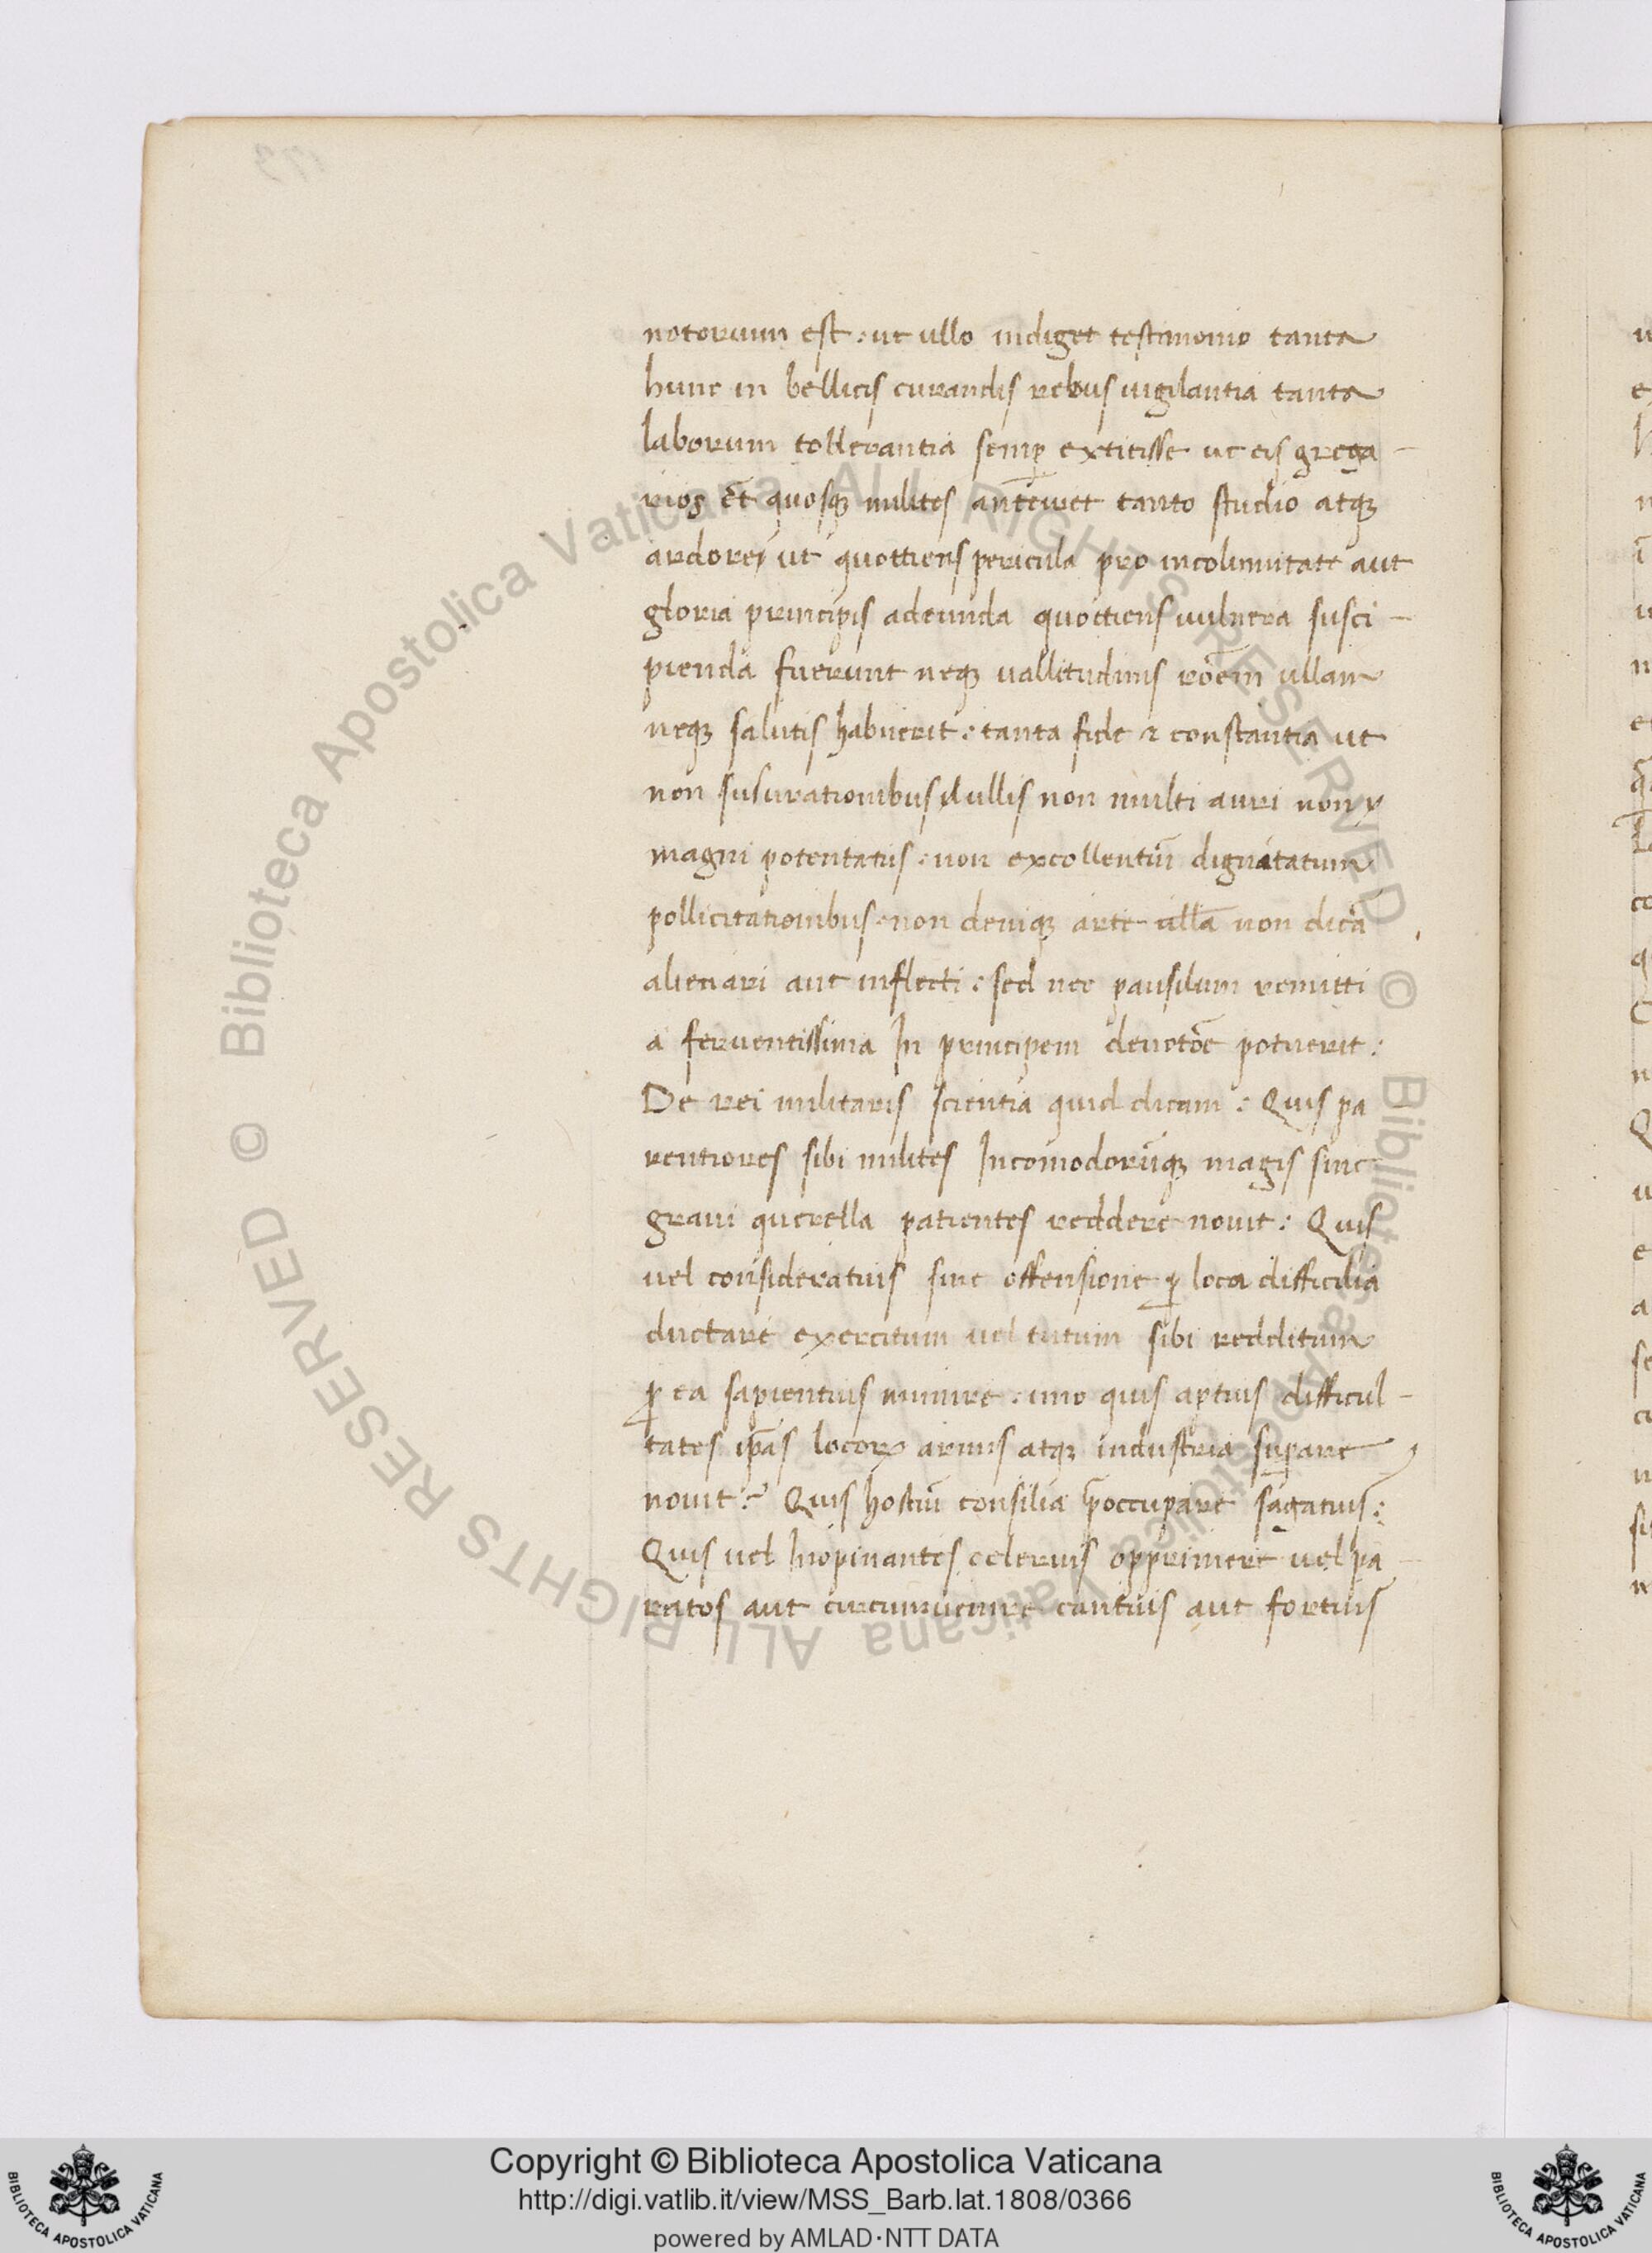 notorium est : ut ullo indiget testimonio tanta
hunc in bellicis curandis rebus uigilantia tanta
laborum tollerantia semp̱ extitisse ut eis grega -
rios et quosqꝫ milites anteiret tanto studio atqꝫ
ardore ut quottiens pericula pro incolumitate aut
gloria principis adeunda quottiens uulnera susci -
pienda fuerunt neqꝫ uallitudinis rōem ullam
neqꝫ salutis habuerit : tanta fide & constantia ut
non susurrationibus ullis non multi auri non
magni potentatus : non excellentiū dignitatum
pollicitationibus non deniqꝫ arte ulla non dicā
alienari aut inflecti : sed nec pausilum remitti
a feruentissima In principem deuotōe potuerit :
De rei militaris scientia quid dicam : Quis pa
rentiores sibi milites Incōmodorūqꝫ magis sine
graui querella patientes reddere nouit : Quis
uel consideratius sine offensione ꝑ loca difficilia
ductare exercitum uel tutum sibi redditum
ꝑ ea sapientius munire : imo quis aptius difficul -
tates ip̄as locoꝝ armis atqꝫ industria suꝑare
nouit ? Quis hostiū consilia p̄occupare sagatius :
Quis uel Inopinantes celerius opprimere uel pa -
ratos aut circumuenire cautius aut fortius
Copyright © Biblioteca Apostolica Vaticana
http://digi.vatlib.it/view/MSS_Barb.lat.1808/0366
powered by AMLAD·NTT DATA
BIBLIOTECA APOSTOLICA VATICANA
BIBLIOTECA APOSTOLICA VATICANA
© Biblioteca Apostolica Vaticana ALL RIGHTS RESERVED © Biblioteca Apostolica Vaticana ALL RIGHTS RESERVED